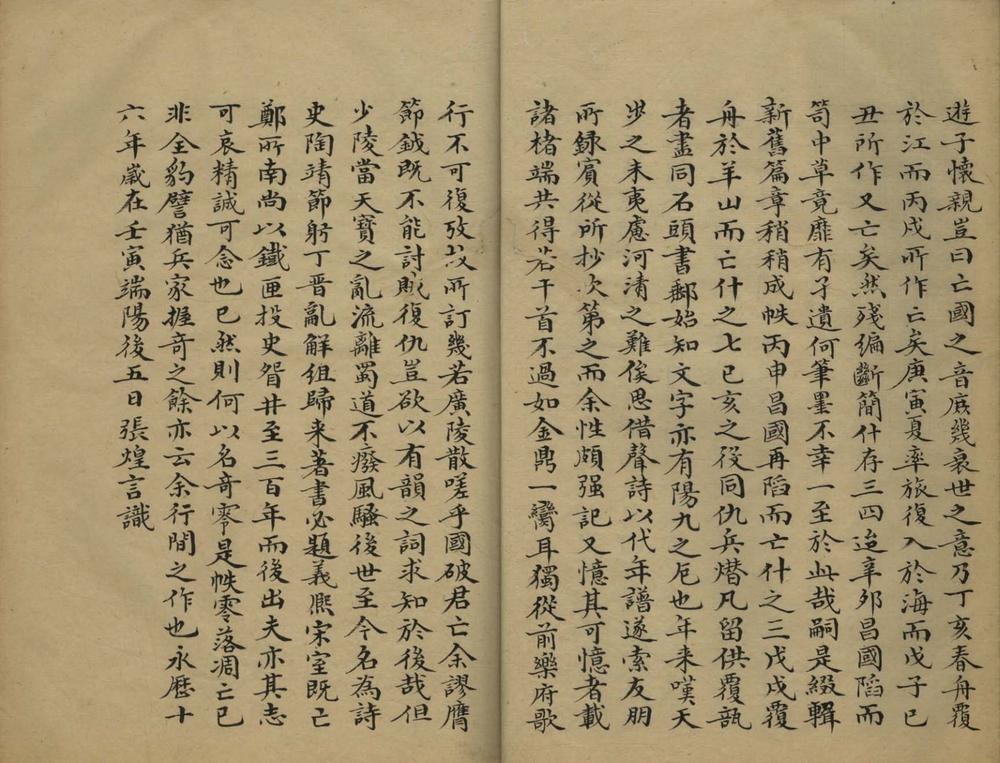 遊子懷親豈曰亡國之音庶幾哀世之意乃丁亥春舟覆
於江而丙戌所作亡矣庚寅夏率旅復入於海而戊子己
丑所作又亡矣然殘編斷簡什存三四迨辛夘昌國陷而
笥中草竟靡有孑遺何筆墨不幸一至於此哉嗣是綴輯
新舊篇章稍稍成帙丙申昌國再陷而亡什之三戊戌覆
舟於羊山而亡什之七己亥之役同仇兵熸凡留供覆瓿
者盡同石頭書郵始知文字亦有陽九之厄也年来嘆天
步之未夷慮河清之難俟思借聲詩以代年譜遂索友朋
所録賓從所抄次第之而余性頗强記又憶其可憶者載
諸楮端共得若干首不過如金鼎一臠耳獨從前樂府歌
行不可復攷故所訂幾若廣陵散嗟乎國破君亡余謬膺
節鉞既不能討賊復仇豈欲以有韻之詞求知於後哉但
少陵當天寶之亂流離蜀道不癈風騷後世至今名為詩
史陶靖節躬丁晋亂解組歸来著書必題義熙宋室既亡
鄭所南尚以鐵匣投史眢井至三百年而後出夫亦其志
可哀精誠可念也已然則何以名竒零是帙零落凋亡已
非全豹譬猶兵家握奇之餘亦云余行間之作也永歷十
六年歲在壬寅端陽後五日張煌言識